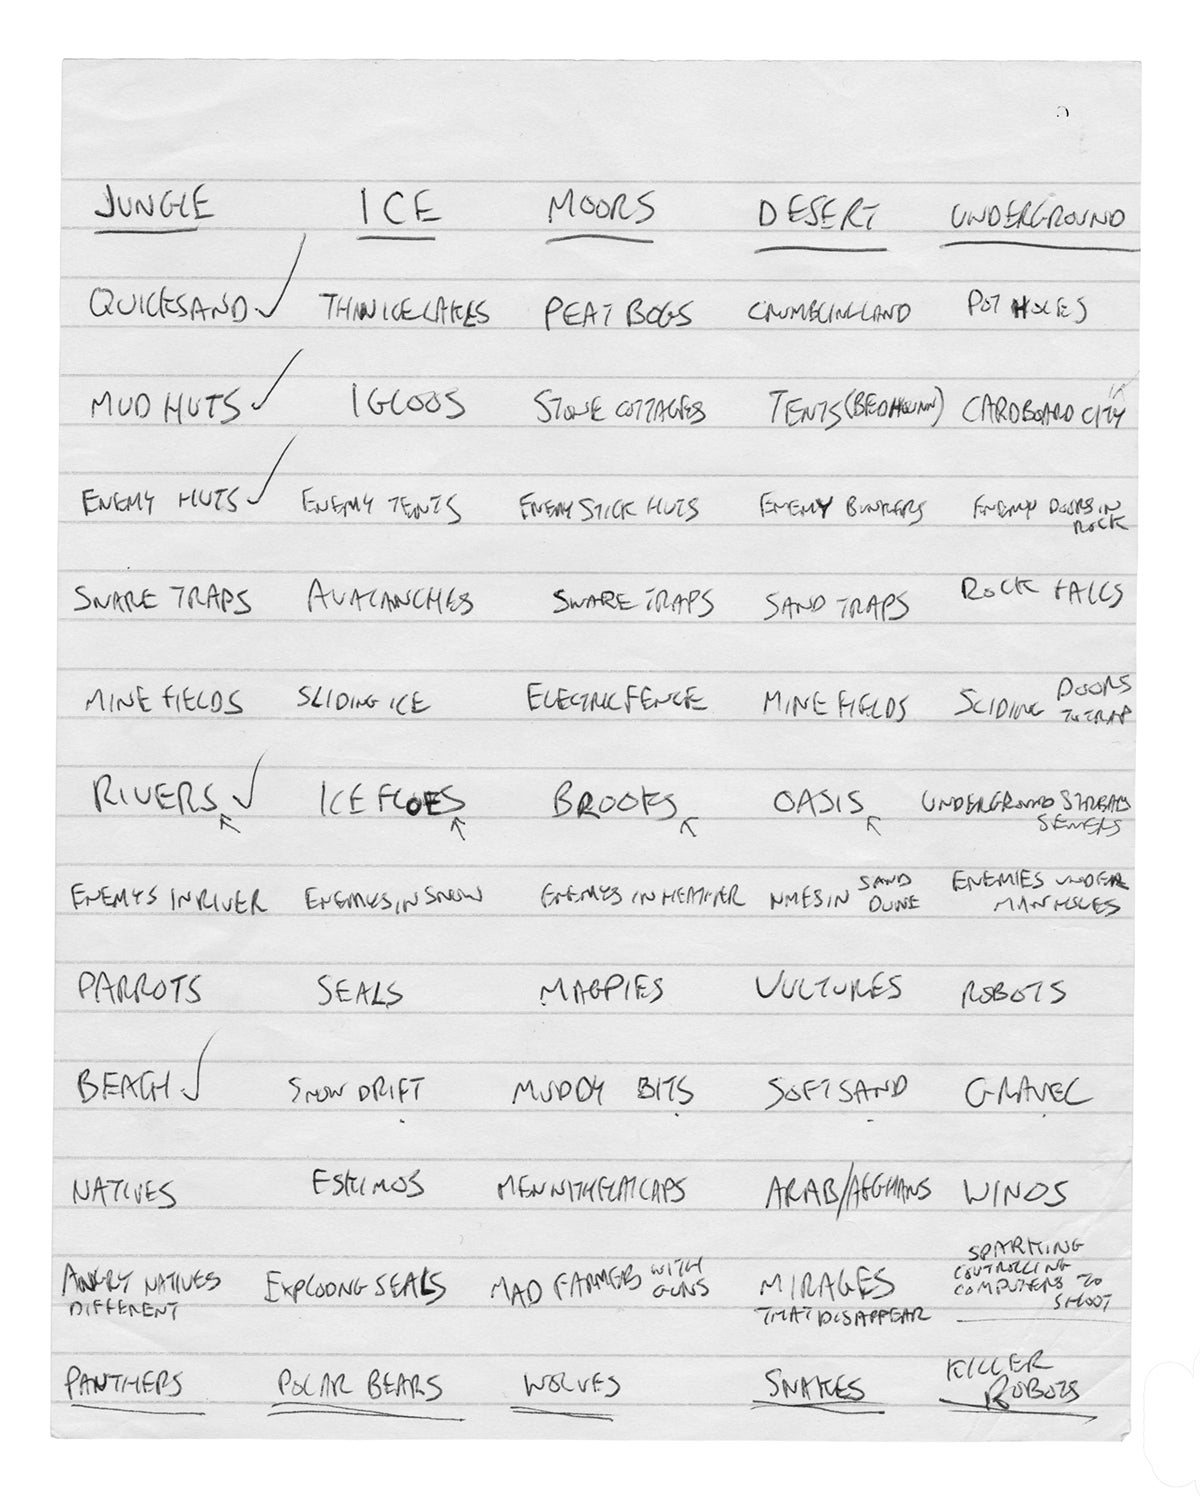 JUNGLE ICE MOORS DESERT UNDERGROUND
QUICKSAND THIN ICE LAKES PEAT BOGS CRUMBLING LAND POT HOLES
MUD HUTS IGLOOS STONE COTTAGES TENTS (BEDHOUINN) CARDBOARD CITY
ENEMY HUTS ENEMY TENTS ENEMY STICK HUTS ENEMY BUNKERS ENEMY DOORS IN
ROCK
SNARE TRAPS AVALANCHES SNARE TRAPS SAND TRAPS ROCK FALLS
MINE FIELDS SLIDING ICE ELECTRIC FENCE MINE FIELDS SLIDING DOORS
TO TRAP
RIVERS ICE FLOES BROOKS OASIS UNDERGROUND STREAMS
SEWERS
ENEMYS IN RIVER ENEMYS IN SNOW ENEMYS IN HEATHER NMES IN SAND
DUNE ENEMIES UNDER
MAN HOLES
PARROTS SEALS MAGPIES VULTURES ROBOTS
BEACH SNOW DRIFT MUDDY BITS SOFT SAND GRAVEL
NATIVES ESKIMOS MEN WITH FLAT CAPS ARAB/AFGHANS WINOS
ANGRY NATIVES
DIFFERENT EXPLODNG SEALS MAD FARMERS WITH
GUNS MIRAGES
THAT DISAPPEAR SPARKING
CONTROLLING
COMPUTERS TO
SHOOT
PANTHERS POLAR BEARS WOLVES SNAKES KILLER
ROBOTS